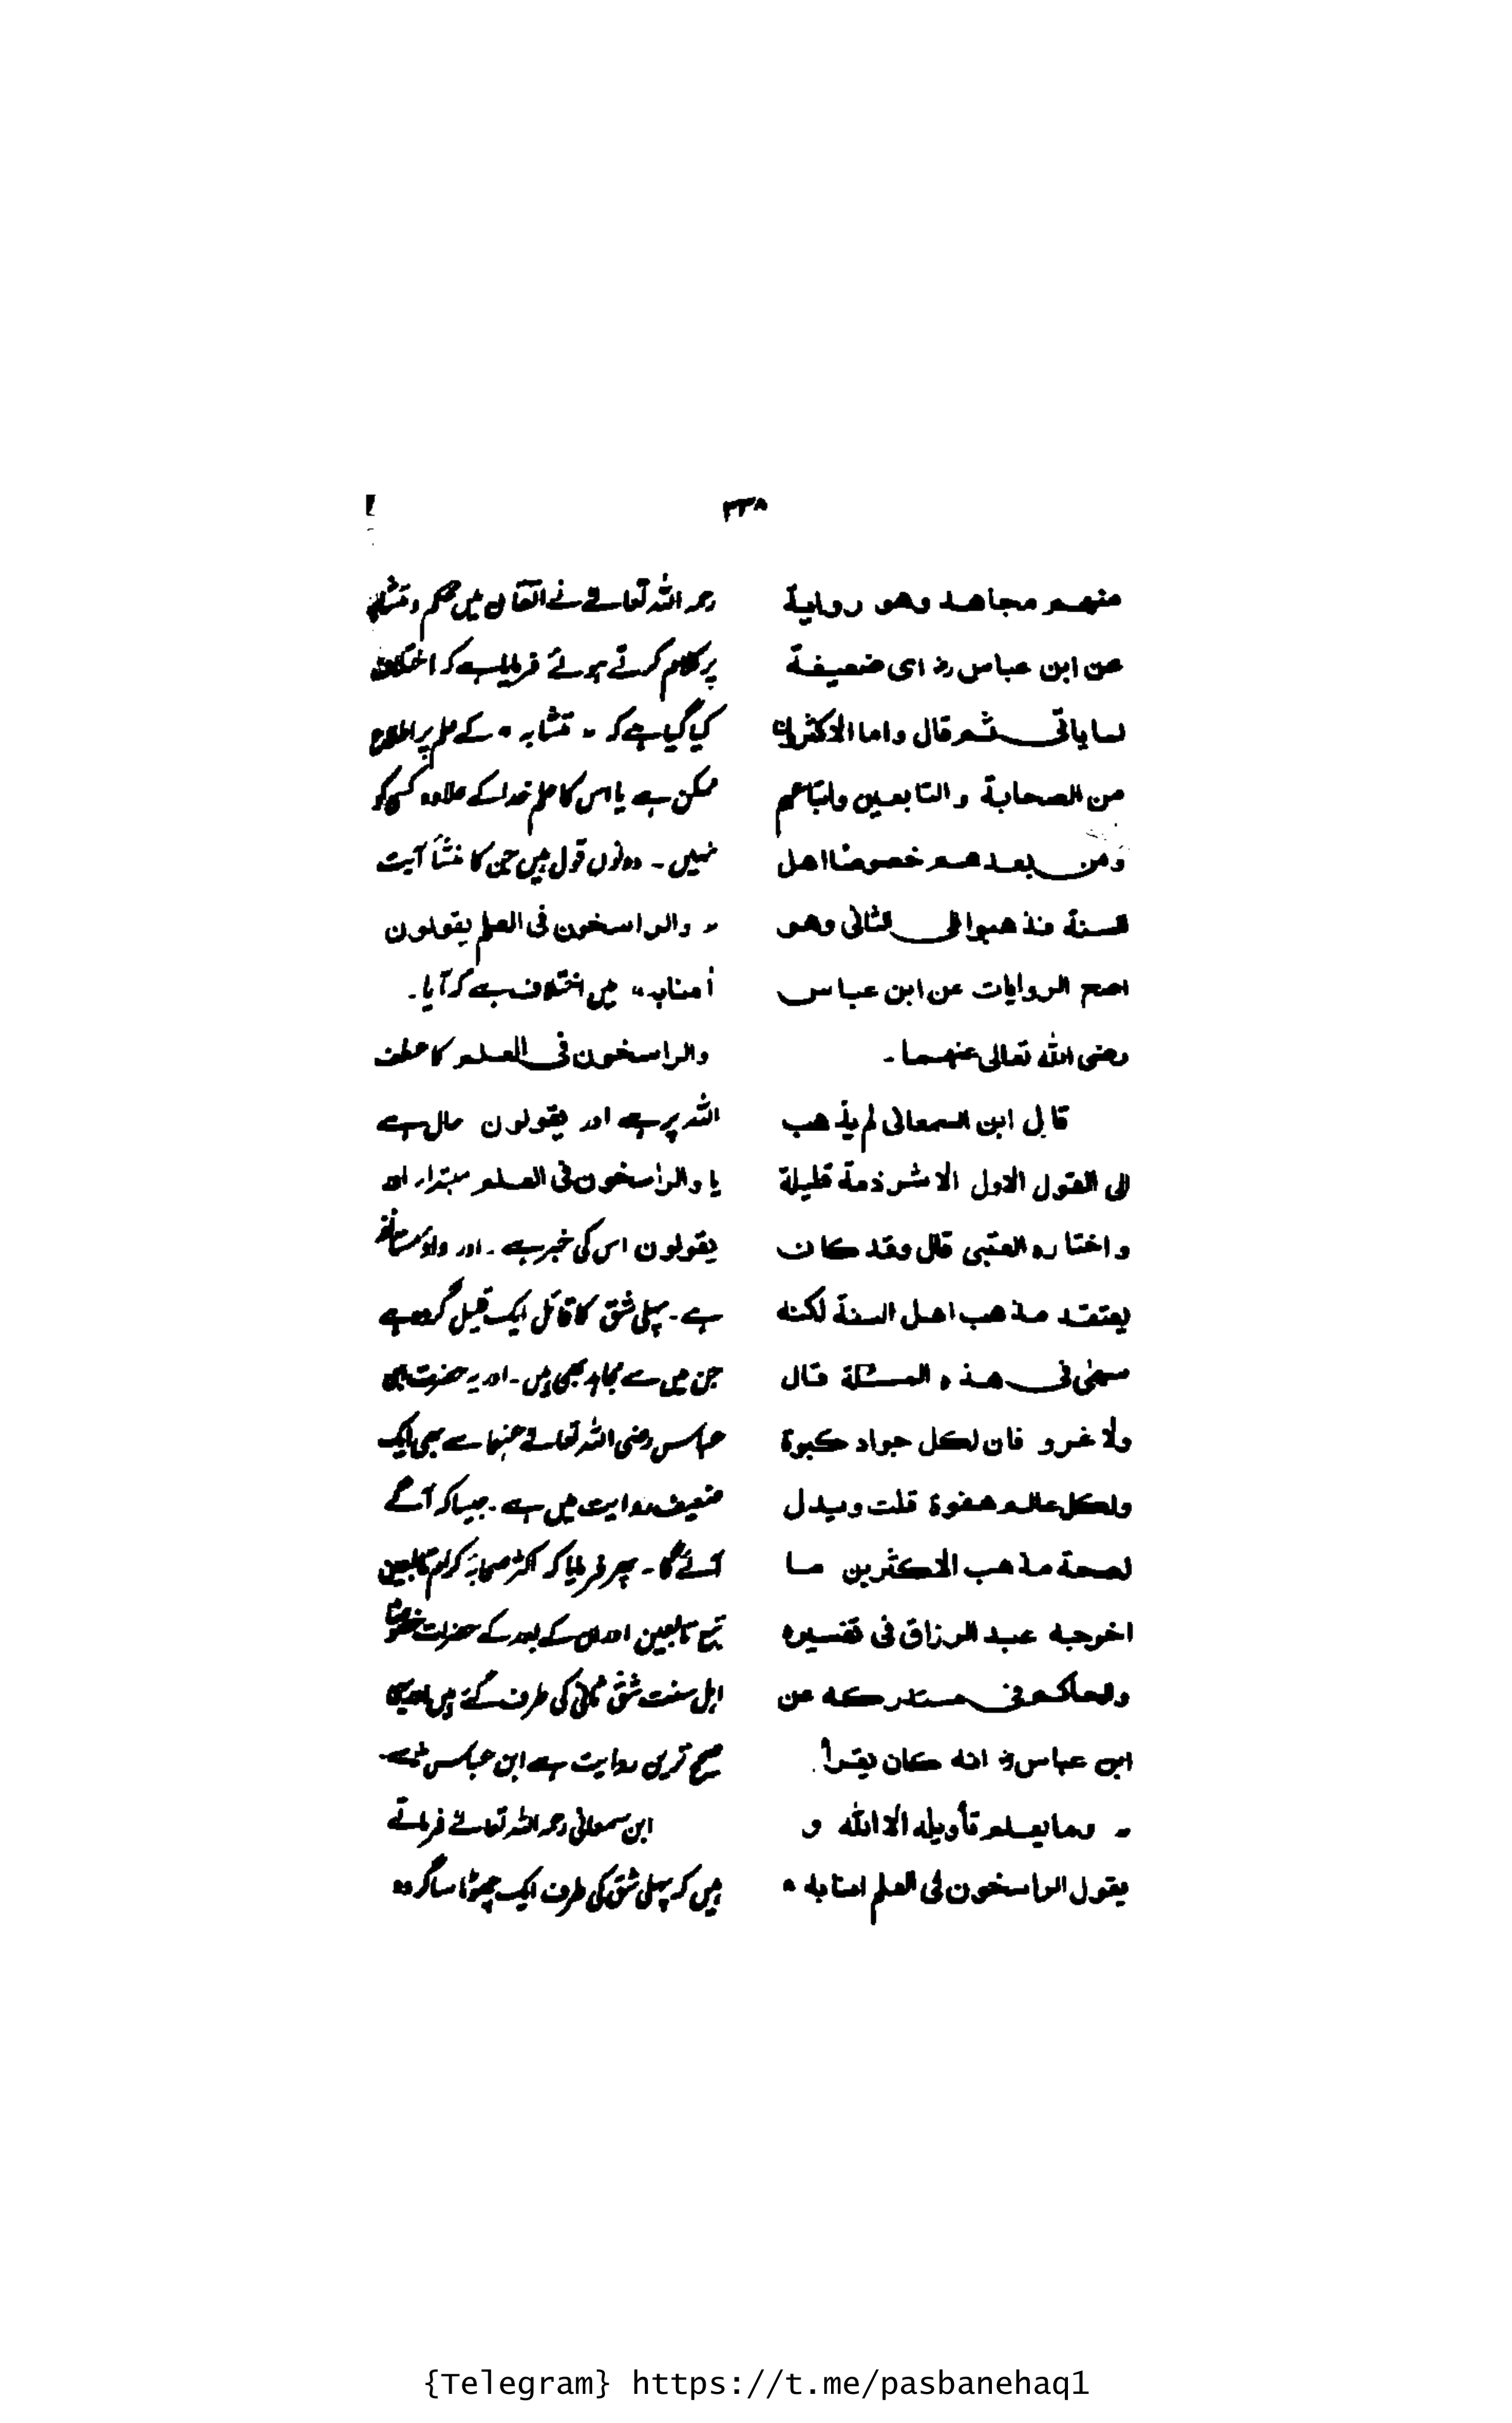 ۳۳۸
منهم مجاهد وهو رواية
عن ابن عباس رض ای ضعيفة
لما ياتی ثم قال واما الاكثرون
من الصحابة والتابعين واتباعهم
ومن بعدهم خصوصًا اهل
السنة فذهبوا الی الثانی وهو
اصح الروايات عن ابن عباس
رضی الله تعالی عنهما ۔
قال ابن السمعانی لم يذهب
الی القول الاول الا شرذمة قليلة
واختاره العتبی قال وقد كان
يعتقد مذهب اهل السنة لكنه
سهٰی فی هذه المسئلة قال
ولا غرو فان لكل جواد كبوة
ولكل عالم هفوة قلت ويدل
لصحة مذهب الاكثرين ما
اخرجه عبد الرزاق فی تفسيره
والحاكم فی مستدركه عن
ابن عباس رض انه كان يقرأ
" وما يعلم تأويله الا الله و
يقول الراسخون فی العلم امنا به "
رحمہ اللہ تعالےٰ نے اتقان میں محکم ومتشابہ
پر کلام کرتے ہوئے فرمایا ہے کہ اختلاف
کیا گیا ہے کہ " متشابہ " کے علم پر اطلاع
ممکن ہے یا اس کا علم خدا کے علاوہ کسی کو
نہیں ۔ دونوں قول ہیں جن کا منشأ آیت
" والراسخون فی العلم یقولون
اٰمنا بہ " میں اختلاف ہے کہ آیا ۔
والراسخون فی العلم کا عطف
اللہ پر ہے اور یقولون حال ہے
یا والراسخون فی العلم مبتدا، اور
یقولون اس کی خبر ہے ۔ اور واؤ مستأنفہ
ہے ۔ پہلی شق کا قائل ایک قلیل گروہ ہے
جن میں سے مجاہد بھی ہیں ۔ اور یہ حضرت ابن
عباس رضی اللہ تعالےٰ عنہما سے بھی ایک
ضعیف روایت میں ہے ۔ جیسا کہ آگے
آئے گا ۔ پھر فرمایا کہ اکثر صحابہ کرام تابعین
تبع تابعین اور ان کے بعد کے حضرات خصوصًا
اہل سنت شق ثانی کی طرف گئے ہیں اور یہی
صحیح ترین روایت ہے ابن عباس رض سے ۔
ابن سمعانی رحمہ اللہ تعالےٰ فرماتے
ہیں کہ پہلی شق کی طرف ایک چھوٹا سا گروہ
{Telegram} https://t.me/pasbanehaq1